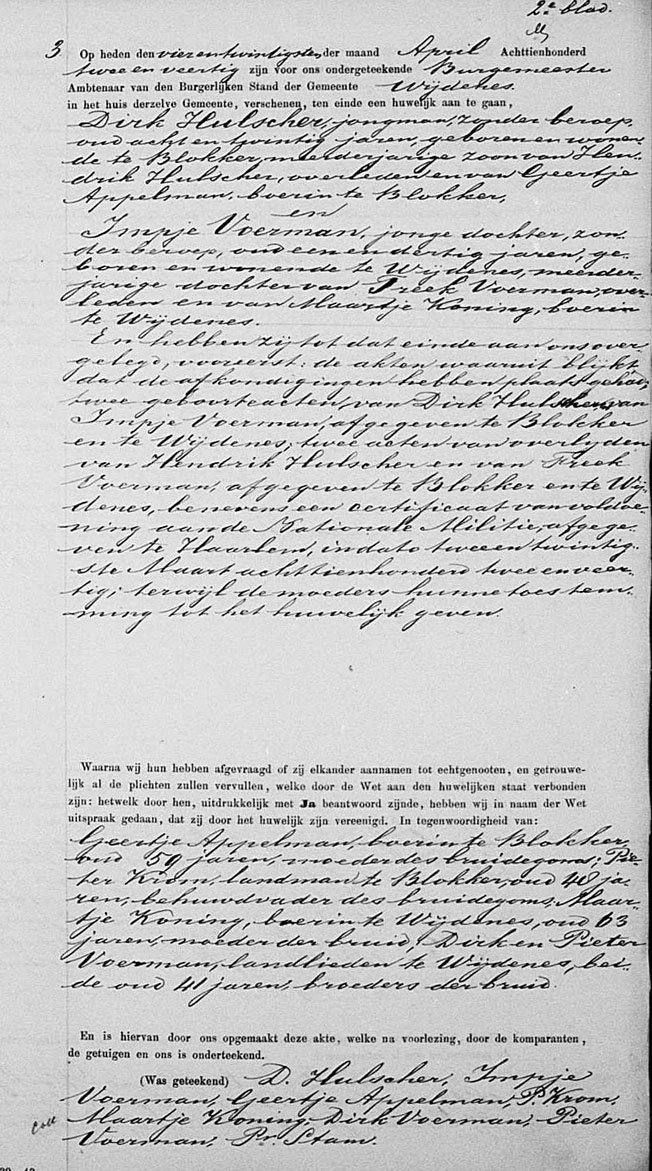 2e blad.
3 Op heden den vierentwintigsten der maand April Achttienhonderd
twee en veertig zijn voor ons ondergeteekende Burgemeester
Ambtenaar van den Burgerlijken Stand der Gemeente Wijdenes.
in het huis derzelve Gemeente, verschenen, ten einde een huwelijk aan te gaan,
Dirk Hulscher, jongman, zonder beroep,
oud acht en twintig jaren, geboren en wonen-
de te Blokker, meerderjarige zoon van Hen-
drik Hulscher, overleden en van Geertje
Appelman, boerin te Blokker,
en
Impje Voerman, jonge dochter, zon-
der beroep, oud een en dertig jaren, ge-
boren en wonende te Wijdenes, meerder-
jarige dochter van Freek Voerman, over-
leden en van Maartje Koning, boerin
te Wijdenes.
En hebben zij tot dat einde aan ons over-
gelegd, vooreerst: de akten waaruit blijkt
dat de afkondigingen hebben plaats gehad,
twee geboorteacten, van Dirk Hulscher, van
Impje Voerman, afgegeven te Blokker
en te Wijdenes; twee acten van overlijden
van Hendrik Hulscher en van Freek
Voerman, afgegeven te Blokker en te Wij-
denes, benevens een certificaat van voldoe-
ning aan de Nationale Militie, afgege-
ven te Haarlem, in dato twee en twintig-
ste Maart achttienhonderd twee en veer-
tig; terwijl de moeders hunne toestem-
ming tot het huwelijk geven.
Waarna wij hun hebben afgevraagd of zij elkander aannamen tot echtgenooten, en getrouwe-
lijk al de plichten zullen vervullen, welke door de Wet aan den huwelijken staat verbonden
zijn: hetwelk door hen, uitdrukkelijk met Ja beantwoord zijnde, hebben wij in naam der Wet
uitspraak gedaan, dat zij door het huwelijk zijn vereenigd. In tegenwoordigheid van:
Geertje Appelman, boerin te Blokker,
oud 59 jaren, moeder des bruidegoms; Pie-
ter Krom, landman te Blokker, oud 48 ja-
ren, behuwdvader des bruidegoms; Maar-
tje Koning, boerin te Wijdenes, oud 63
jaren, moeder der bruid; Dirk en Pieter
Voerman, landlieden te Wijdenes, bei-
de oud 41 jaren, broeders der bruid.
En is hiervan door ons opgemaakt deze akte, welke na voorlezing, door de komparanten,
de getuigen en ons is onderteekend.
(Was geteekend) D. Hulscher, Impje
Voerman, Geertje Appelman, P. Krom,
Maartje Koning, Dirk Voerman, Pieter
Voerman, Pr Stam.